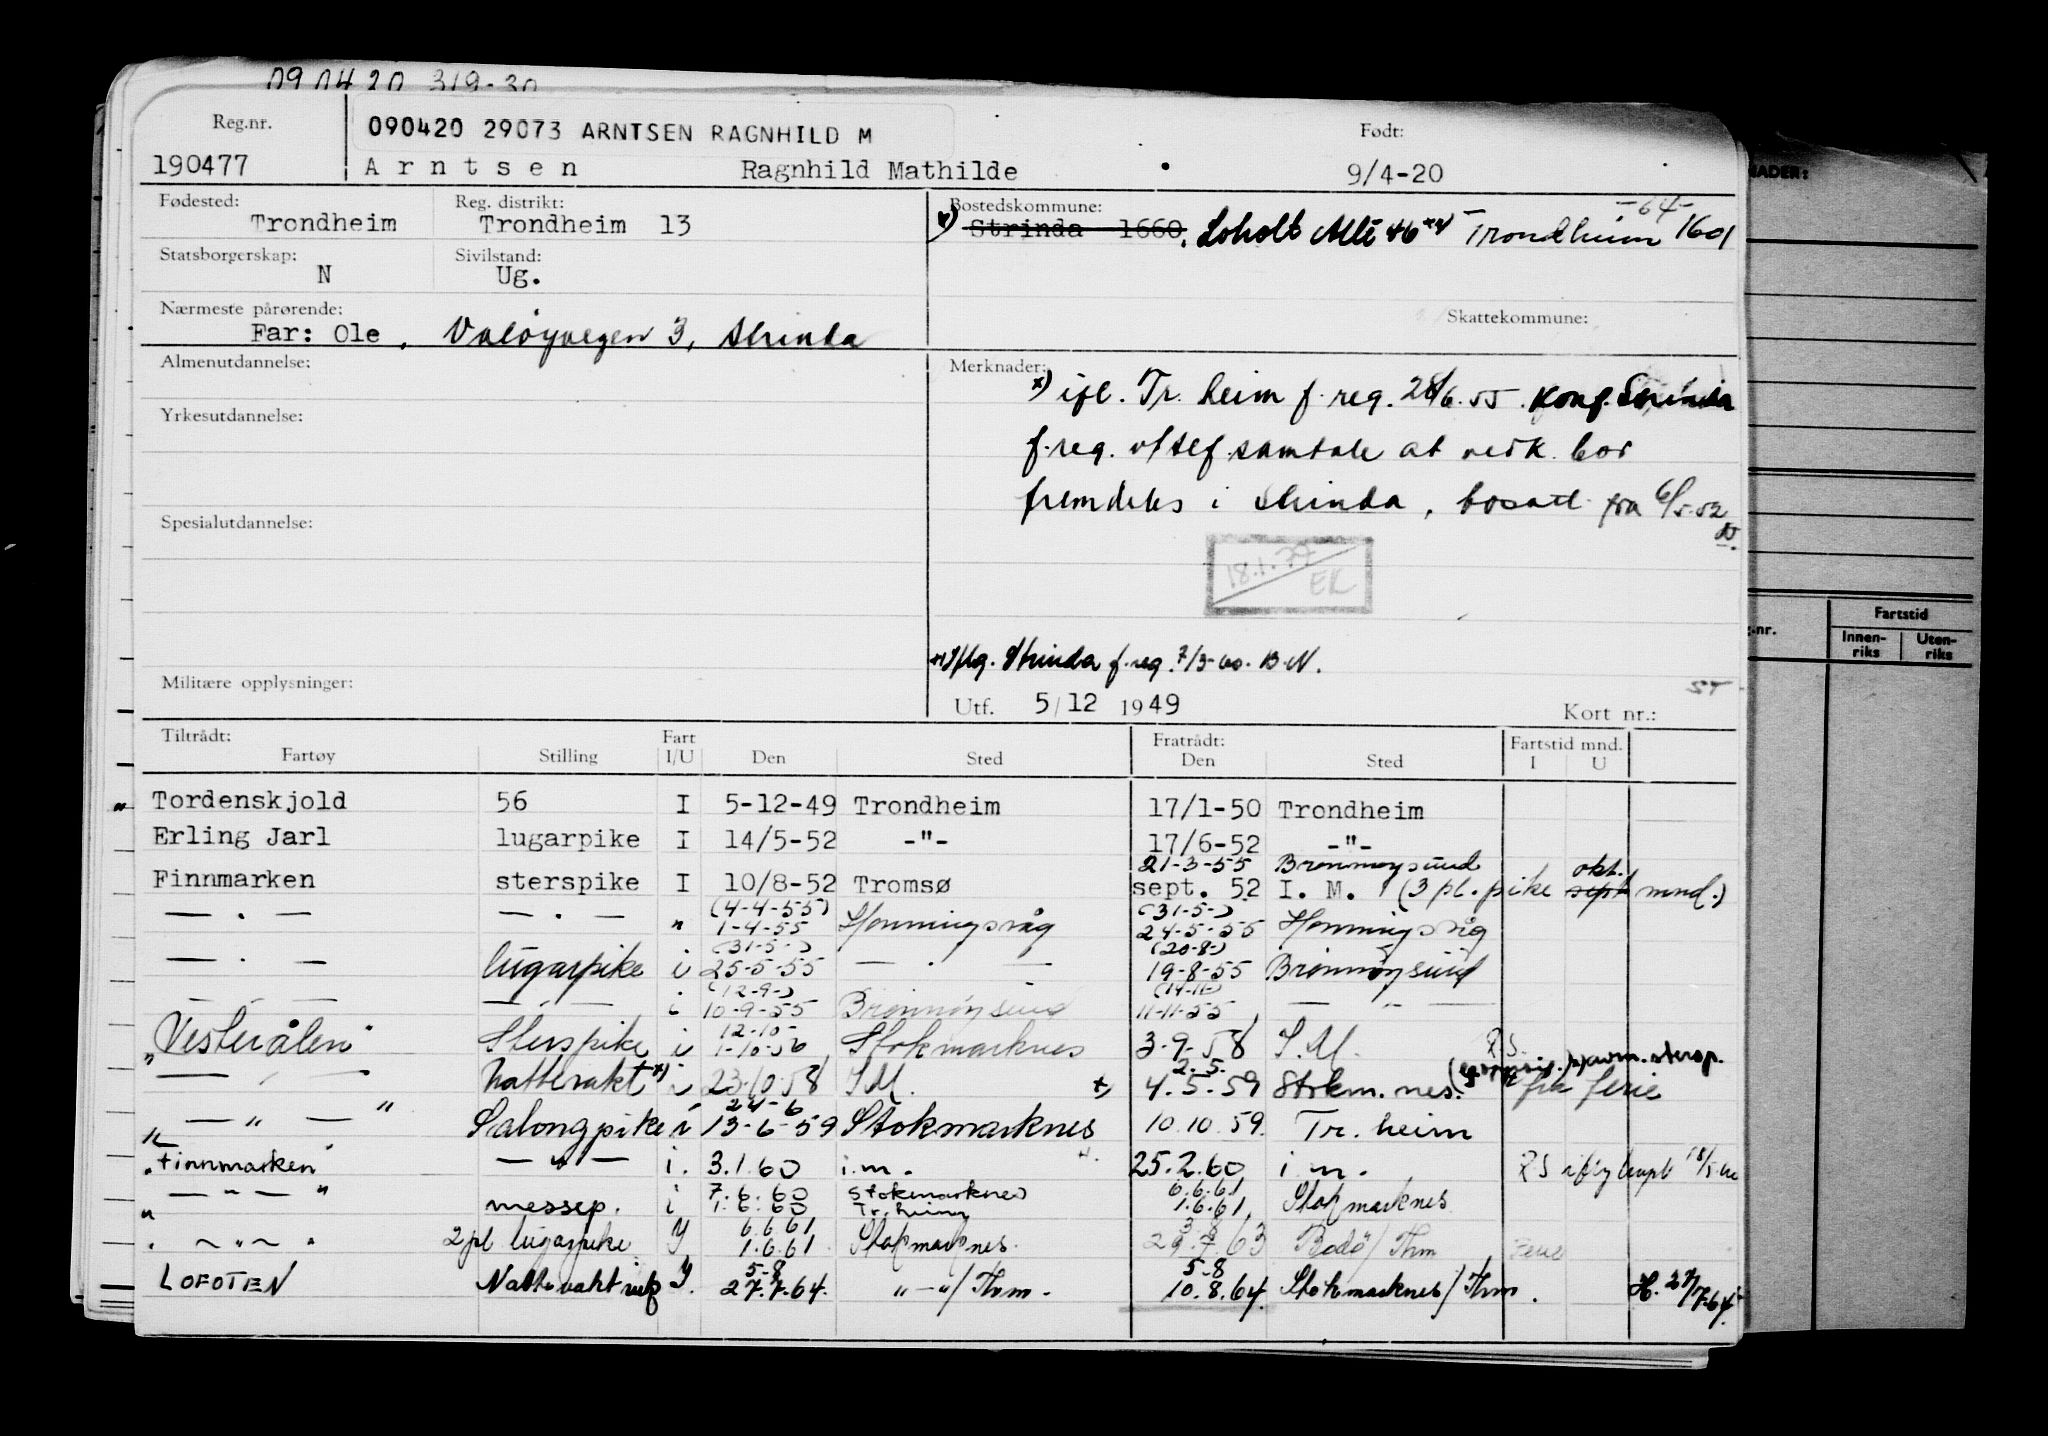 090420 319-30
Reg.nr.
090420 29073 ARNTSEN RAGNHILD M
Født:
190477 Arntsen Ragnhild Mathilde 9/4-20
Fødested: Reg. distrikt: Bostedskommune:
Trondheim Trondheim 13 Strinda 1660, Loholt Allé 46 Trondheim 1601
-64-
Statsborgerskap: Sivilstand:
N Ug.
Nærmeste pårørende: Skattekommune:
Far: Ole, Valøyvegen 3, Strinda
Almenutdannelse: Merknader:
x) ifl. Tr.heim f.reg. 28/6.55. Konf. Strinda
Yrkesutdannelse:
f.reg. v/telf.samtale at vedk. bor
fremdeles i Strinda, bosatt fra 6/5.52
Spesialutdannelse:
18.1.77
EK
Iflg. Strinda f.reg. 7/3-60. B.N.
Militære opplysninger:
Utf. 5/12 1949 Kort nr.:
Tiltrådt: Fart Fratrådt: Fartstid mnd.
Fartøy Stilling I/U Den Sted Den Sted I U
Tordenskjold 56 I 5-12-49 Trondheim 17/1-50 Trondheim
Erling Jarl lugarpike I 14/5-52 -"- 17/6-52 -"-
21-3-55 Brønnøysund okt.
Finnmarken sterspike I 10/8-52 Tromsø sept. 52 I. M. (3 pl. pike sept mnd.)
(4-4-55) (31-5-)
— . — — . — " 1-4-55 Honningsvåg 24-5-55 Honningsvåg
(31-5-) (20-8-)
— . — lugarpike i 25-5-55 — . — 19-8-55 Brønnøysund
(12-9-) (14-11-)
— . — — . — i 10-9-55 Brønnøysund 11-11-55 — " —
12-10-
"Vesterålen" Sterspike i 1-10-56 Stokmarknes 3-9-58 I.M.
2.5.
— " — Nattevakt x) i 23.10.58 I.M. x) 4.5.59 Stokm.nes. fra ferie
24-6
— " — " Salongpike i 13-6-59 Stokmarknes 10.10.59. Tr.heim
"Finnmarken" — " — i. 3.1.60 i.m. 25.2.60 i.m.
7.6.60 Stokmarknes 6.6.61
— " — " messep. i 1.6.60 Tr.heim 1.6.61 Stokmarknes
6.6.61 3.8
" — " — " 2pl lugarpike Y 1.6.61 Stokmarknes. 29.7.63 Bodø/Thm Ferie
5-8 5-8
LOFOTEN Nattevakt Y. 27.7.64. "—"/Thm. 10.8.64. Stokmarknes/Thm. H. 27/7.64.
NADER:
g.nr. Fartstid
Innen-riks Uten-riks